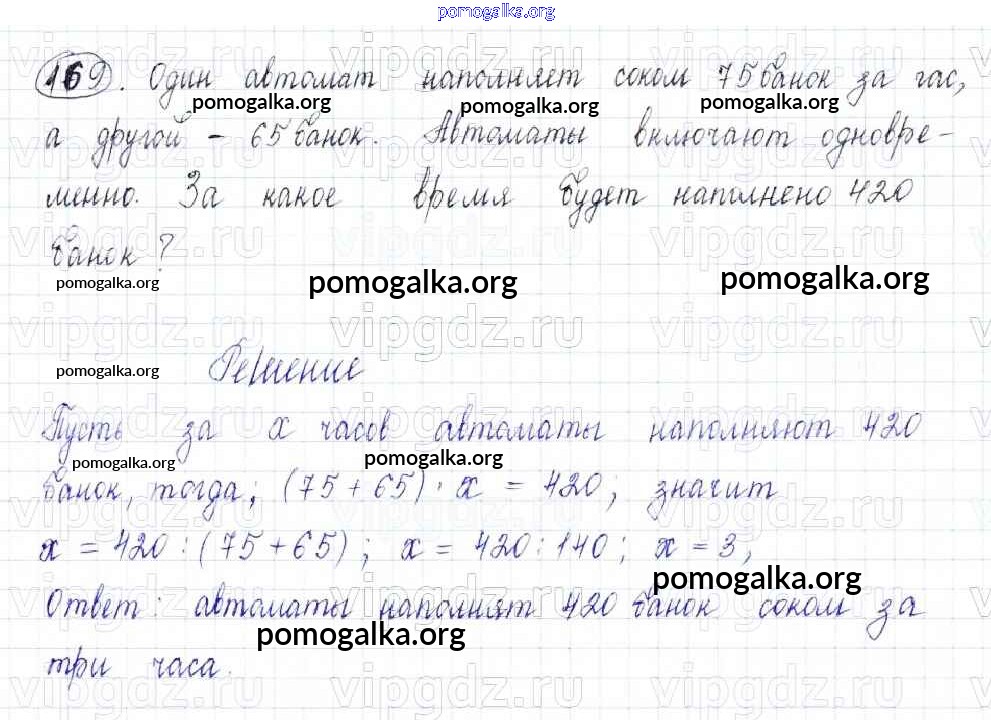 pomogalka.org
169. Один автомат наполняет соком 75 банок за час,
pomogalka.org pomogalka.org pomogalka.org
а другой - 65 банок. Автоматы включают одновре-
менно. За какое время будет наполнено 420
банок?
pomogalka.org pomogalka.org pomogalka.org
vipgdz.ru vipgdz.ru vipgdz.ru
pomogalka.org Решение
Пусть за x часов автоматы наполняют 420
pomogalka.org pomogalka.org
банок, тогда; (75 + 65) · x = 420; значит
x = 420 : (75 + 65); x = 420 : 140; x = 3,
pomogalka.org
Ответ: автоматы наполнят 420 банок соком за
pomogalka.org
три часа.
vipgdz.ru vipgdz.ru vipgdz.ru